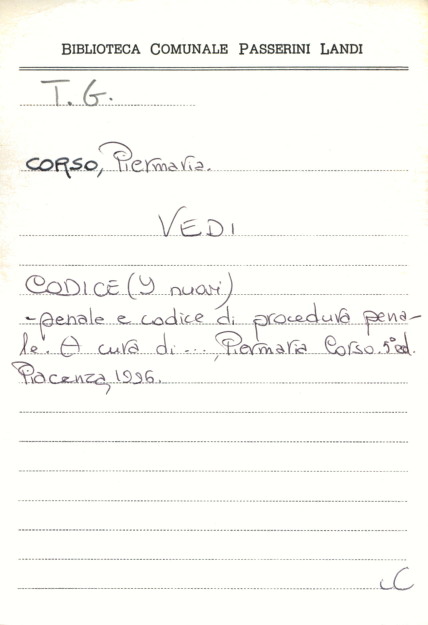 BIBLIOTECA COMUNALE PASSERINI LANDI
T. G.
CORSO, Piermaria.
VEDI
CODICE (I nuovi)
- penale e codice di procedura pena-
le. A cura di ..., Piermaria Corso. 5ª ed.
Piacenza, 1996.